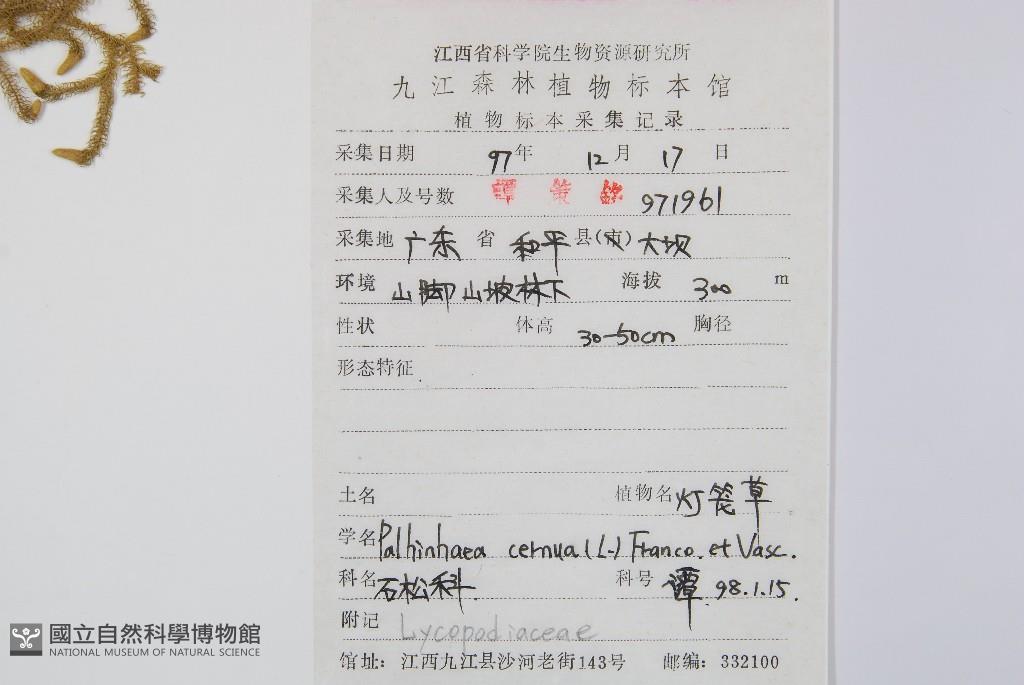 江西省科学院生物资源研究所
九江森林植物标本馆
植物标本采集记录
采集日期 97年 12月 17日
采集人及号数 譚策銘 971961
采集地 广东 省 和平 县(市) 大坝
环境 山脚山坡林下 海拔 300 m
性状 体高 30-50cm 胸径
形态特征
土名 植物名 灯笼草
学名 Palhinhaea cernua (L.) Franco. et Vasc.
科名 石松科 科号 譚 98.1.15.
附记 Lycopodiaceae
馆址：江西九江县沙河老街143号 邮编：332100
國立自然科學博物館
NATIONAL MUSEUM OF NATURAL SCIENCE